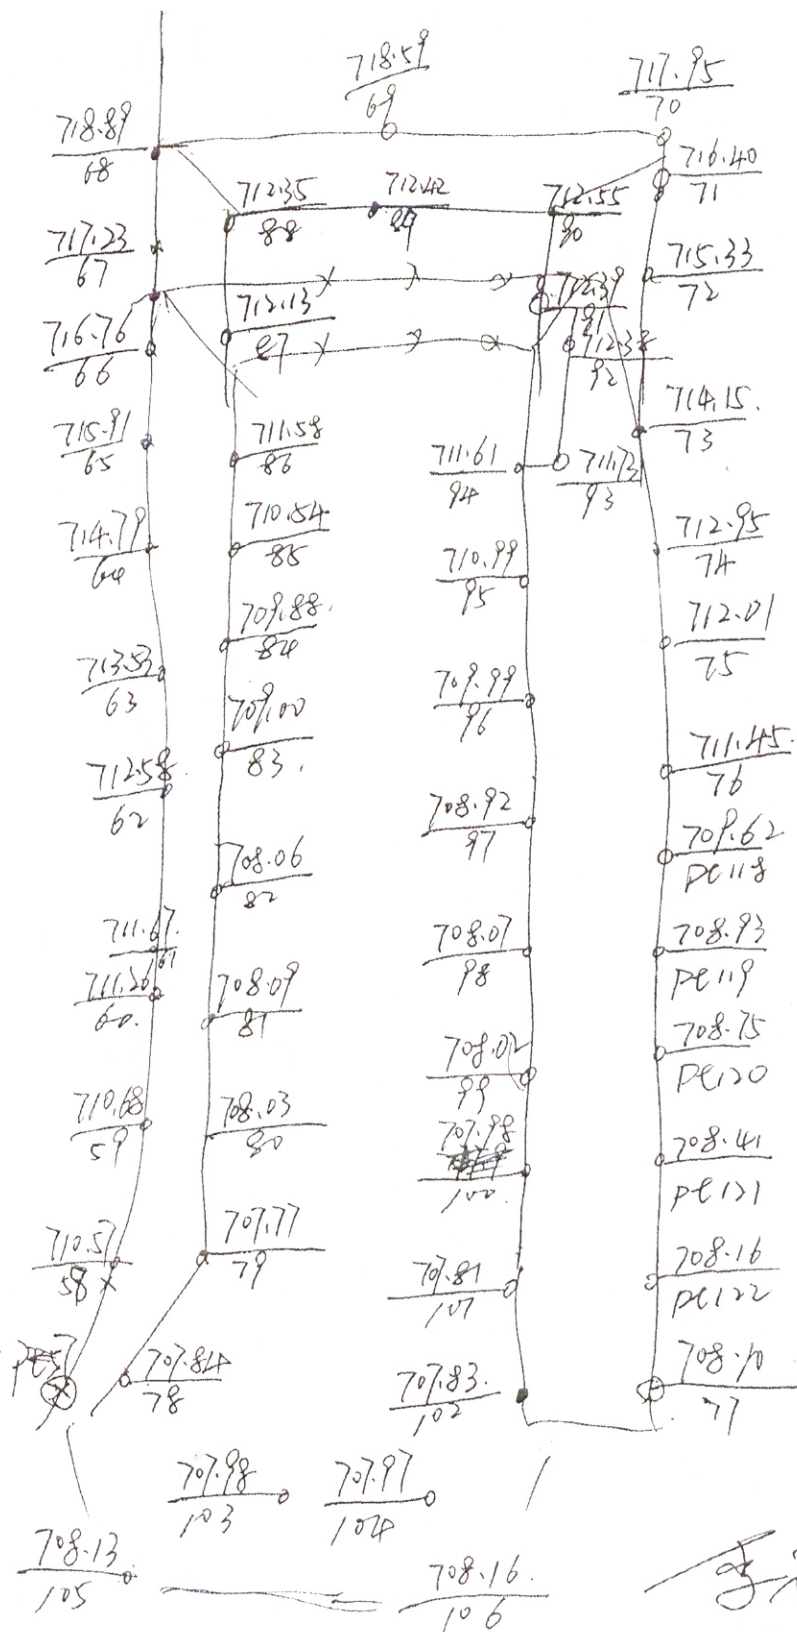 718.59
69
717.95
70
718.89
68
716.40
71
712.35
88
712.42
89
712.55
90
717.23
67
715.33
72
712.39
91
712.13
87
716.76
66
712.38
92
714.15.
73
715.91
65
711.58
86
711.61
94
711.73
93
714.79
64
710.54
85
710.99
95
712.95
74
709.88.
84
712.01
75
713.53
63
709.99
96
709.00
83.
711.45.
76
712.58
62
708.92
97
709.62
PC118
708.06
82
711.67.
61
708.07
98
708.93
PC119
711.26
60.
708.09
81
708.02
99
708.75
PC120
710.68
59
708.03
80
707.98
100.
708.41
PC121
710.57
58
707.77
79
707.81
101
708.16
PC122
707.84
78
707.83.
102
708.10
77
707.98
103
707.97
104
708.13
105
708.16.
106
李